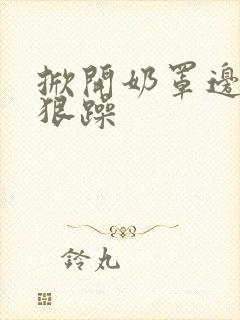 掀開奶罩邊
狠躁
鈴丸